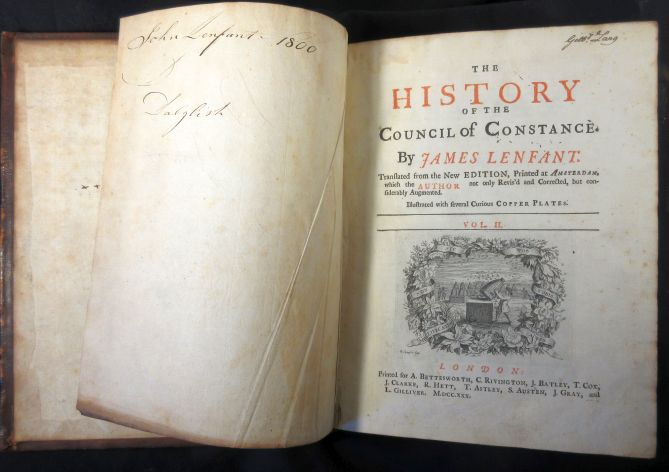 John Lenfant - 1800
Dalglish
THE
HISTORY
OF THE
COUNCIL of CONSTANCE.
By JAMES LENFANT.
Translated from the New EDITION, Printed at AMSTERDAM,
which the AUTHOR not only Revis'd and Corrected, but con-
siderably Augmented.
Illustrated with several Curious COPPER PLATES.
VOL. II.
LONDON:
Printed for A. BETTESWORTH, C. RIVINGTON, J. BATLEY, T. COX,
J. CLARKE, R. HETT, T. ASTLEY, S. AUSTEN, J. GRAY, and
L. GILLIVER. MDCC.XXX.